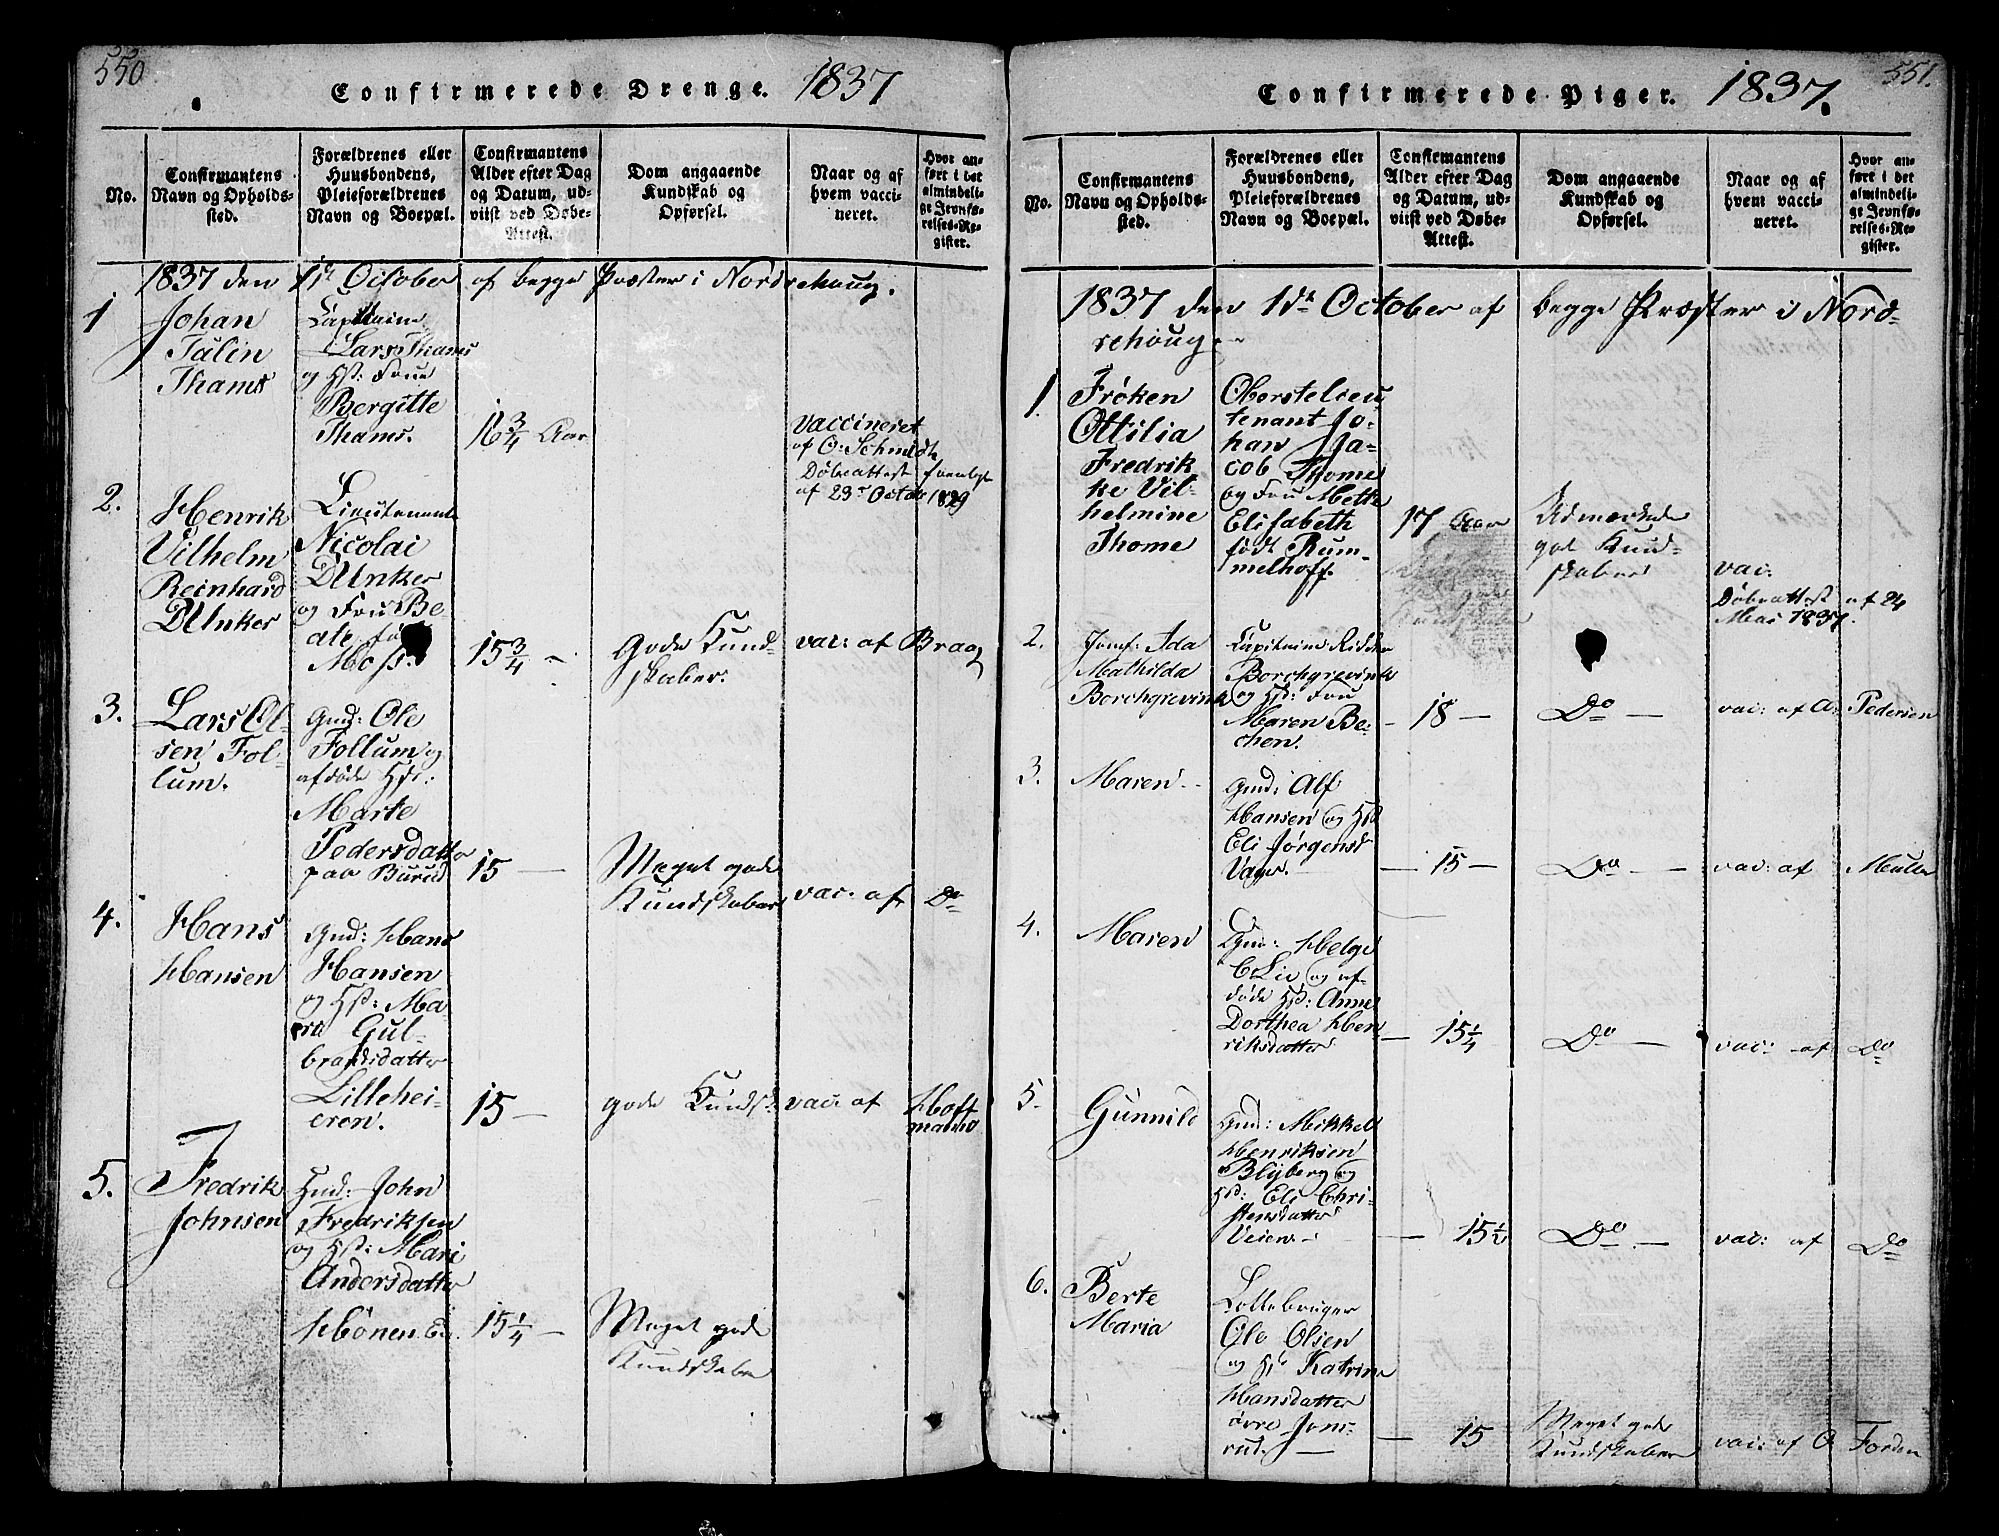 550
Confirmerede Drenge. 1837
No.
Confirmantens
Navn og Opholds-
sted.
Forældrenes eller
Huusbondens,
Pleieforældrenes
Navn og Boepæl.
Confirmantens
Alder efter Dag
og Datum, ud-
viist ved Døbe-
Attest.
Dom angaaende
Kundskab og
Opførsel.
Naar og af
hvem vacci-
neret.
Hvor an-
ført i det
almindeli-
ge Jevnfø-
relses-Re-
gister.
1837 den 1ste October af begge Præster i Nordrehaug.
1
Johan
Talin
Thams
Capitaine
Lars Thams
og Hst: Frue
Bergitte
Thams.
16 3/4 Aar
Vaccineret
af O: Schmidt
Døbeattest
af 23de Octob 1829
2.
Henrik
Vilhelm
Reinhard
Dunker
Lieutenant
Nicolai
Dunker
og Fru Be-
ate
Moss.
15 3/4 -
Gode Kund-
skaber.
vac: af Braag
3.
Lars Ol-
sen Fol-
lum.
Gmd: Ole
Follum og
afdøde Hst:
Marte
Pedersdatter
paa Burud
15 —
Meget gode
Kundskaber
vac: af Do
4.
Hans
Hansen
Gmd: Hans
Hansen
og Hst: Ma-
ria Gul-
brandsdatter
Lillehei-
eren.
15 —
gode Kundsk:
vac: af Hoff
mand
5.
Fredrik
Johnsen
Hmd: John
Fredriksen
og Hst: Mari
Andersdatter
Hønen Ei.
15 1/4 —
Meget gode
Kundskaber
551.
Confirmerede Piger. 1837.
No.
Confirmantens
Navn og Opholds-
sted.
Forældrenes eller
Huusbondens,
Pleieforældrenes
Navn og Boepæl.
Confirmantens
Alder efter Dag
og Datum, ud-
viist ved Døbe-
Attest.
Dom angaaende
Kundskab og
Opførsel.
Naar og af
hvem vacci-
neret.
Hvor an-
ført i det
almindeli-
ge Jevnfø-
relses-Re-
gister.
1837 den 1ste October af begge Præster i Nord-
rehoug
1.
Frøken
Ottilia
Fredrik
ke Vil-
helmine
Thome
Oberstlieu
tenant Jo-
han Ja-
cob Thome
og Fru Mette
Elisabeth
født Rum-
melhoff.
17 Aar
Udmærkede
gode Kund-
skaber
vac.
Døbeattest af 24
Mai 1837.
2.
Jomf: Ida
Mathilda
Borchgrevink
Capitaine Ridder
Borchgrevink
og Hst: Fru
Maren Be-
chen.
— 18 —
Do —
vac: af A: Pedersen
3.
Maren
Gmd: Alf
Hansen og Hst
Eli Jørgensd
Vager.
— 15 —
Do —
vac: af Muller
4.
Maren
Gmd: Helge
Lie og af-
døde Hst: Anne
Dorthea Hen
riksdatter
— 15 1/4
Do —
vac: af Do
5.
Gunnild
Gmd: Mikkel
Henriksen
Blyberg og
Hst: Eli Chri-
stensdatter
Veien
— 15 1/2
Do —
vac: af Do
6.
Berte
Maria
Lottebruger
Ole Olsen
og Hst Katrine
Hansdatter
øvre Jons-
rud.
— 15
Meget gode
Kundskaber
vac: af O Forden